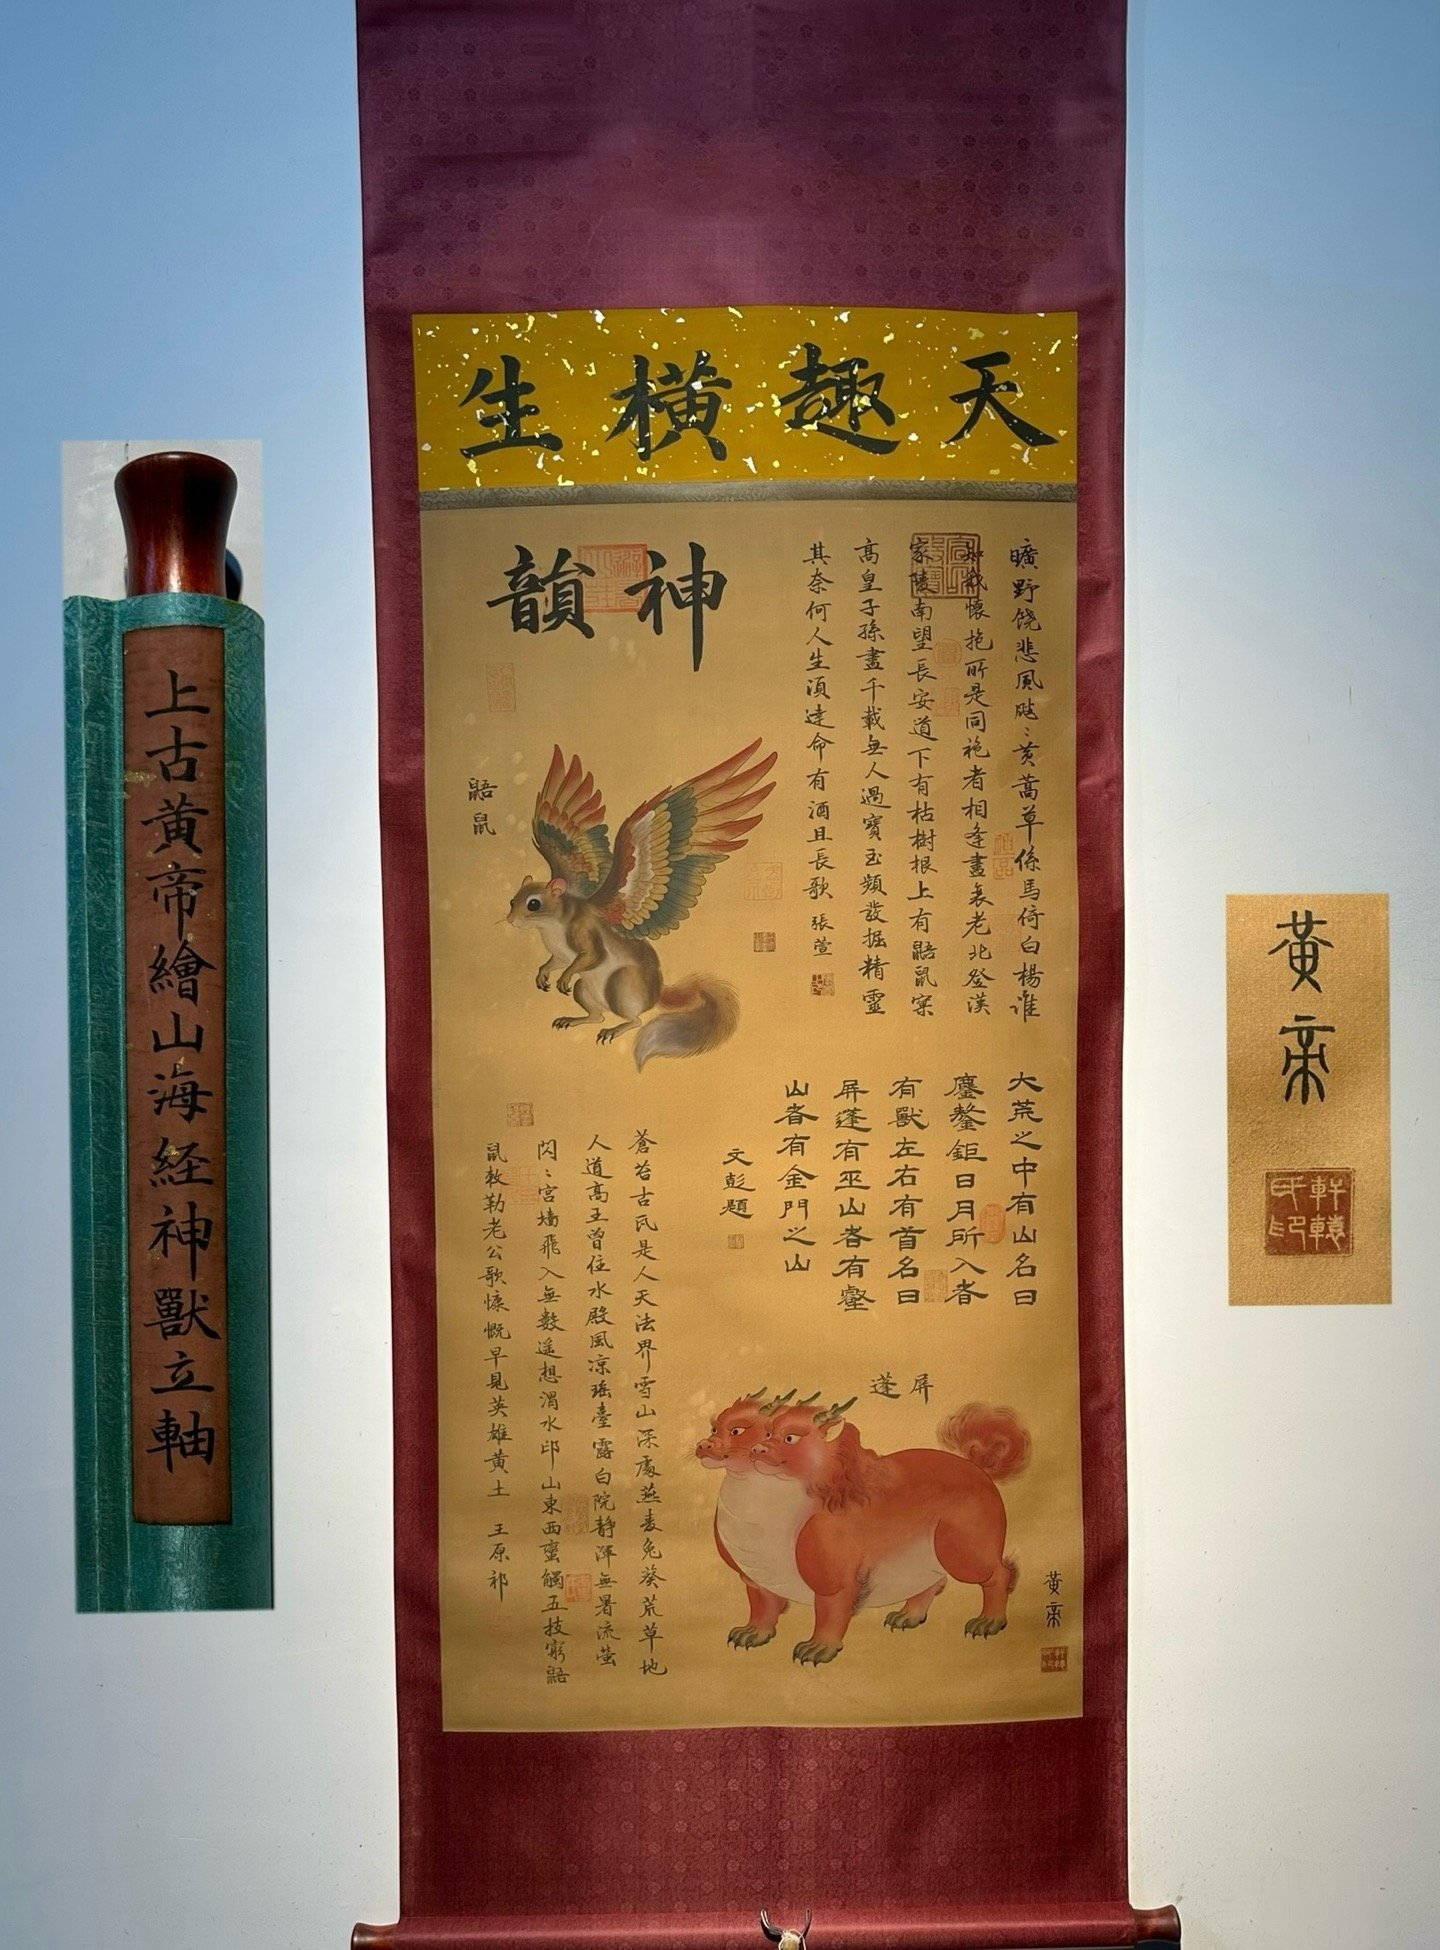 天趣橫生
神韻
曠野饒悲風颼〻黃蒿草係馬倚白楊誰
知我懷抱所是同袍者相逢盡衰老北登漢
家陵南望長安道下有枯樹根上有鼯鼠窠
高皇子孫盡千載無人過寶玉頻發掘精靈
其奈何人生須達命有酒且長歌 張萱
鼯鼠
大荒之中有山名曰
鏖鏊鉅日月所入者
有獸左右有首名曰
屏蓬有巫山者有壑
山者有金門之山
文彭題
蒼苔古瓦是人天法界雪山深處燕麦兔葵荒草地
人道高王曾住水殿風凉瑤臺露白院静渾無暑流螢
閃〻宮墻飛入無數遥想渭水邙山東西蠻觸五技窮鼯
鼠敕勒老公歌慷慨早見英雄黄土 王原祁
屏蓬
黃帝
上古黄帝繪山海経神獸立軸
黃帝
軒轅氏印